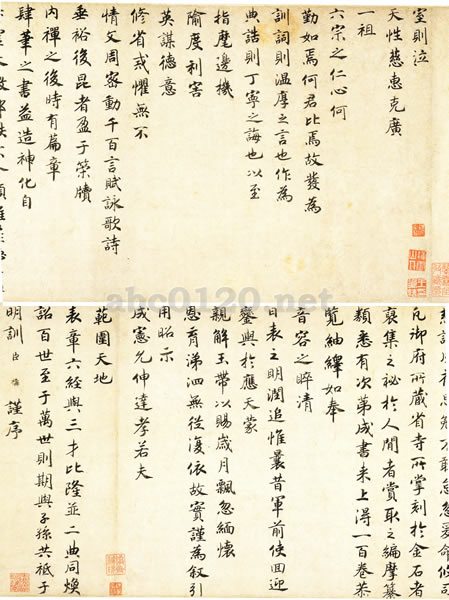 室則泣
天性慈惠克廣
一祖
六宗之仁心何
勤如焉何君比焉故發為
訓詞則溫厚之言也作為
典誥則丁寧之誨也以至
指麾邊機
隃度利害
英謀德意
修省戒懼無不
情文周密動千百言賦詠歌詩
垂裕後昆者盈于牘
內禪之後時有篇章
肆筆之書益造神化自
凡御府所藏省寺所掌刻於金石者
裒集之秘於人間者賞取之編摩纂
類悉有次第成書來上得一百卷恭
覽紬繹如奉
音容之睟清
日表之明潤追惟曩昔軍前使回迎
鑾輿於應天蒙
親解玉帶以賜歲月飄忽緬懷
恩育涕泗無從復依故實謹為敘引
用昭示
成憲允伸達孝若夫
範圍天地
表章六經與三才比隆並二典同煥
詒百世至于萬世則期與子孫共祗于
明訓臣謹序
abc0120.net